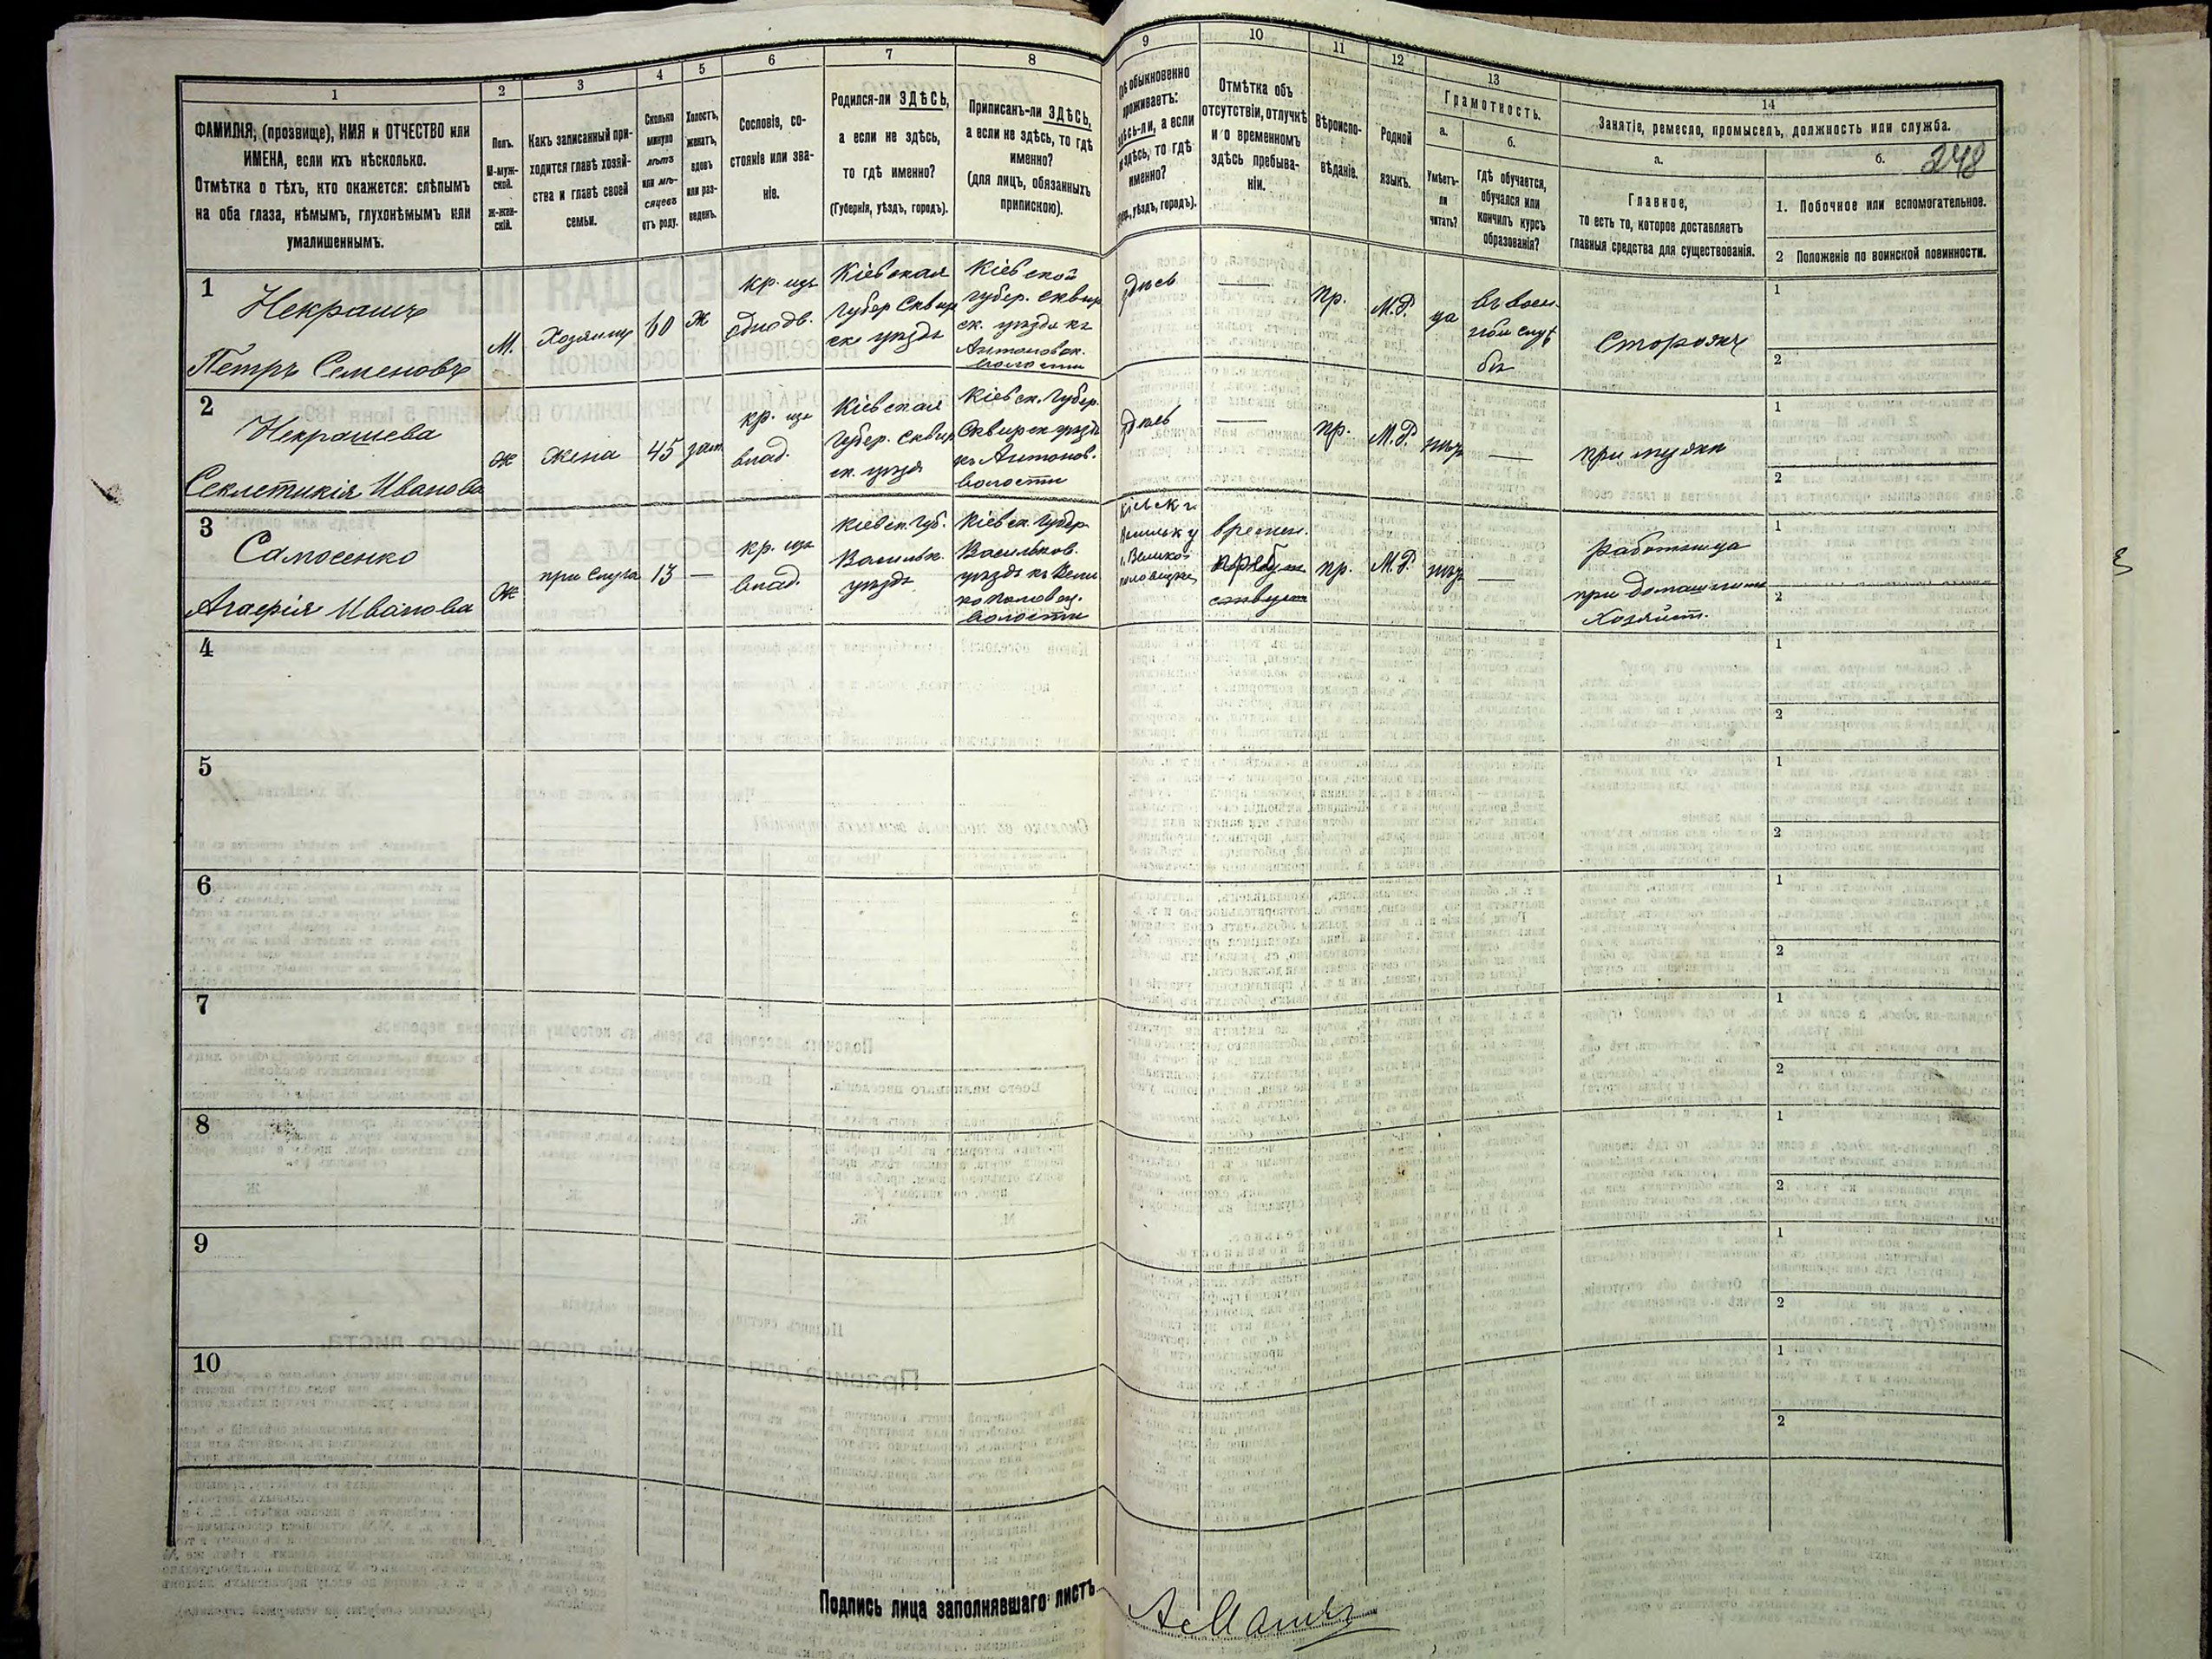 1
2
3
4
5
6
7
8
9
10
11
12
13
14
ФАМИЛІЯ, (прозвище), ИМЯ и ОТЧЕСТВО или
ИМЕНА, если ихъ нѣсколько.
Отмѣтка о тѣхъ, кто окажется: слѣпымъ
на оба глаза, нѣмымъ, глухонѣмымъ или
умалишеннымъ.
Полъ.
М-муж-
ской.
Ж-жен-
скій.
Какъ записанный при-
ходится главѣ хозяй-
ства и главѣ своей
семьи.
Сколько
минуло
лѣтъ
или мѣ-
сяцевъ
отъ роду.
Холостъ,
женатъ,
вдовъ
или раз-
веденъ.
Сословіе, со-
стояніе или зва-
ніе.
Родился-ли ЗДѢСЬ,
а если не здѣсь,
то гдѣ именно?
(Губернія, уѣздъ, городъ).
Приписанъ-ли ЗДѢСЬ,
а если не здѣсь, то гдѣ
именно?
(для лицъ, обязанныхъ
припискою).
обыкновенно
проживаетъ:
здѣсь-ли, а если
не здѣсь, то гдѣ
именно?
уѣздъ, городъ).
Отмѣтка объ
отсутствіи, отлучкѣ
и о временномъ
здѣсь пребыва-
ніи.
Вѣроиспо-
вѣданіе.
Родной
языкъ.
Грамотность.
а.
б.
Умѣетъ-
ли
читать?
гдѣ обучается,
обучался или
кончилъ курсъ
образованія?
Занятіе, ремесло, промыселъ, должность или служба.
а.
б.
248
Главное,
то есть то, которое доставляетъ
главныя средства для существованія.
1. Побочное или вспомогательное.
2 Положеніе по воинской повинности.
1
Некрашъ
Петръ Семеновъ
М.
Хозяинъ
60
Ж
кр. изъ
однодв.
Кіевская
губер Сквир
ск уѣздъ
Кіевской
губер. сквир
ск. уѣзда къ
Антоновск.
волости
здѣсь
—
пр.
М.Р.
да
въ воен-
ной служ
бѣ
Сторожъ
1
2
2
Некрашева
Секлетикія Иванова
Ж
жена
45
зам
кр. из
влад.
Кіевская
Губер. сквир
ск. уѣзд
Кіевск. Губер.
Сквирск уѣзда
къ Антонов.
волости
здѣсь
—
пр.
М.Р.
нѣтъ
—
при мужѣ
1
2
3
Самосенко
Агафія Иванова
Ж
при слуга
13
—
кр. изъ
влад.
Кіевск. Губ.
Васильк.
уѣздъ
Кіевск. Губер.
Васильков.
уѣзда къ Вели
ко Половец.
волости
Васильк у
Велико-
половецкъ
времен.
пр.
М.Р.
нѣтъ
—
работница
при домашнемъ
хозяйст.
1
2
4
1
2
5
1
2
6
1
2
7
1
2
8
1
2
9
1
2
10
1
2
Подпись лица заполнявшаго листъ